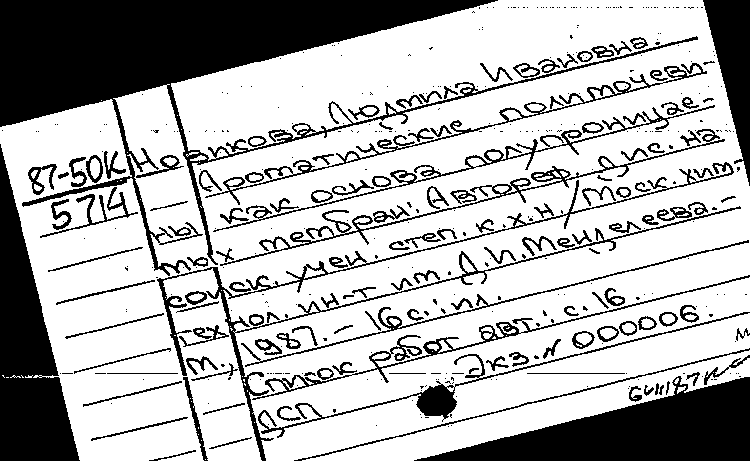 87-50К
5714
Новикова, Людмила Ивановна.
Ароматические полимочеви-
ны как основа полупроницае-
мых мембран: Автореф. дис. на
соиск. учен. степ. к.х.н. / Моск. хим.-
технол. ин-т им. Д.И. Менделеева. -
М., 1987. - 16 с. : ил.
Список работ авт.: с. 16.
Экз. N 000006.
ДСП.